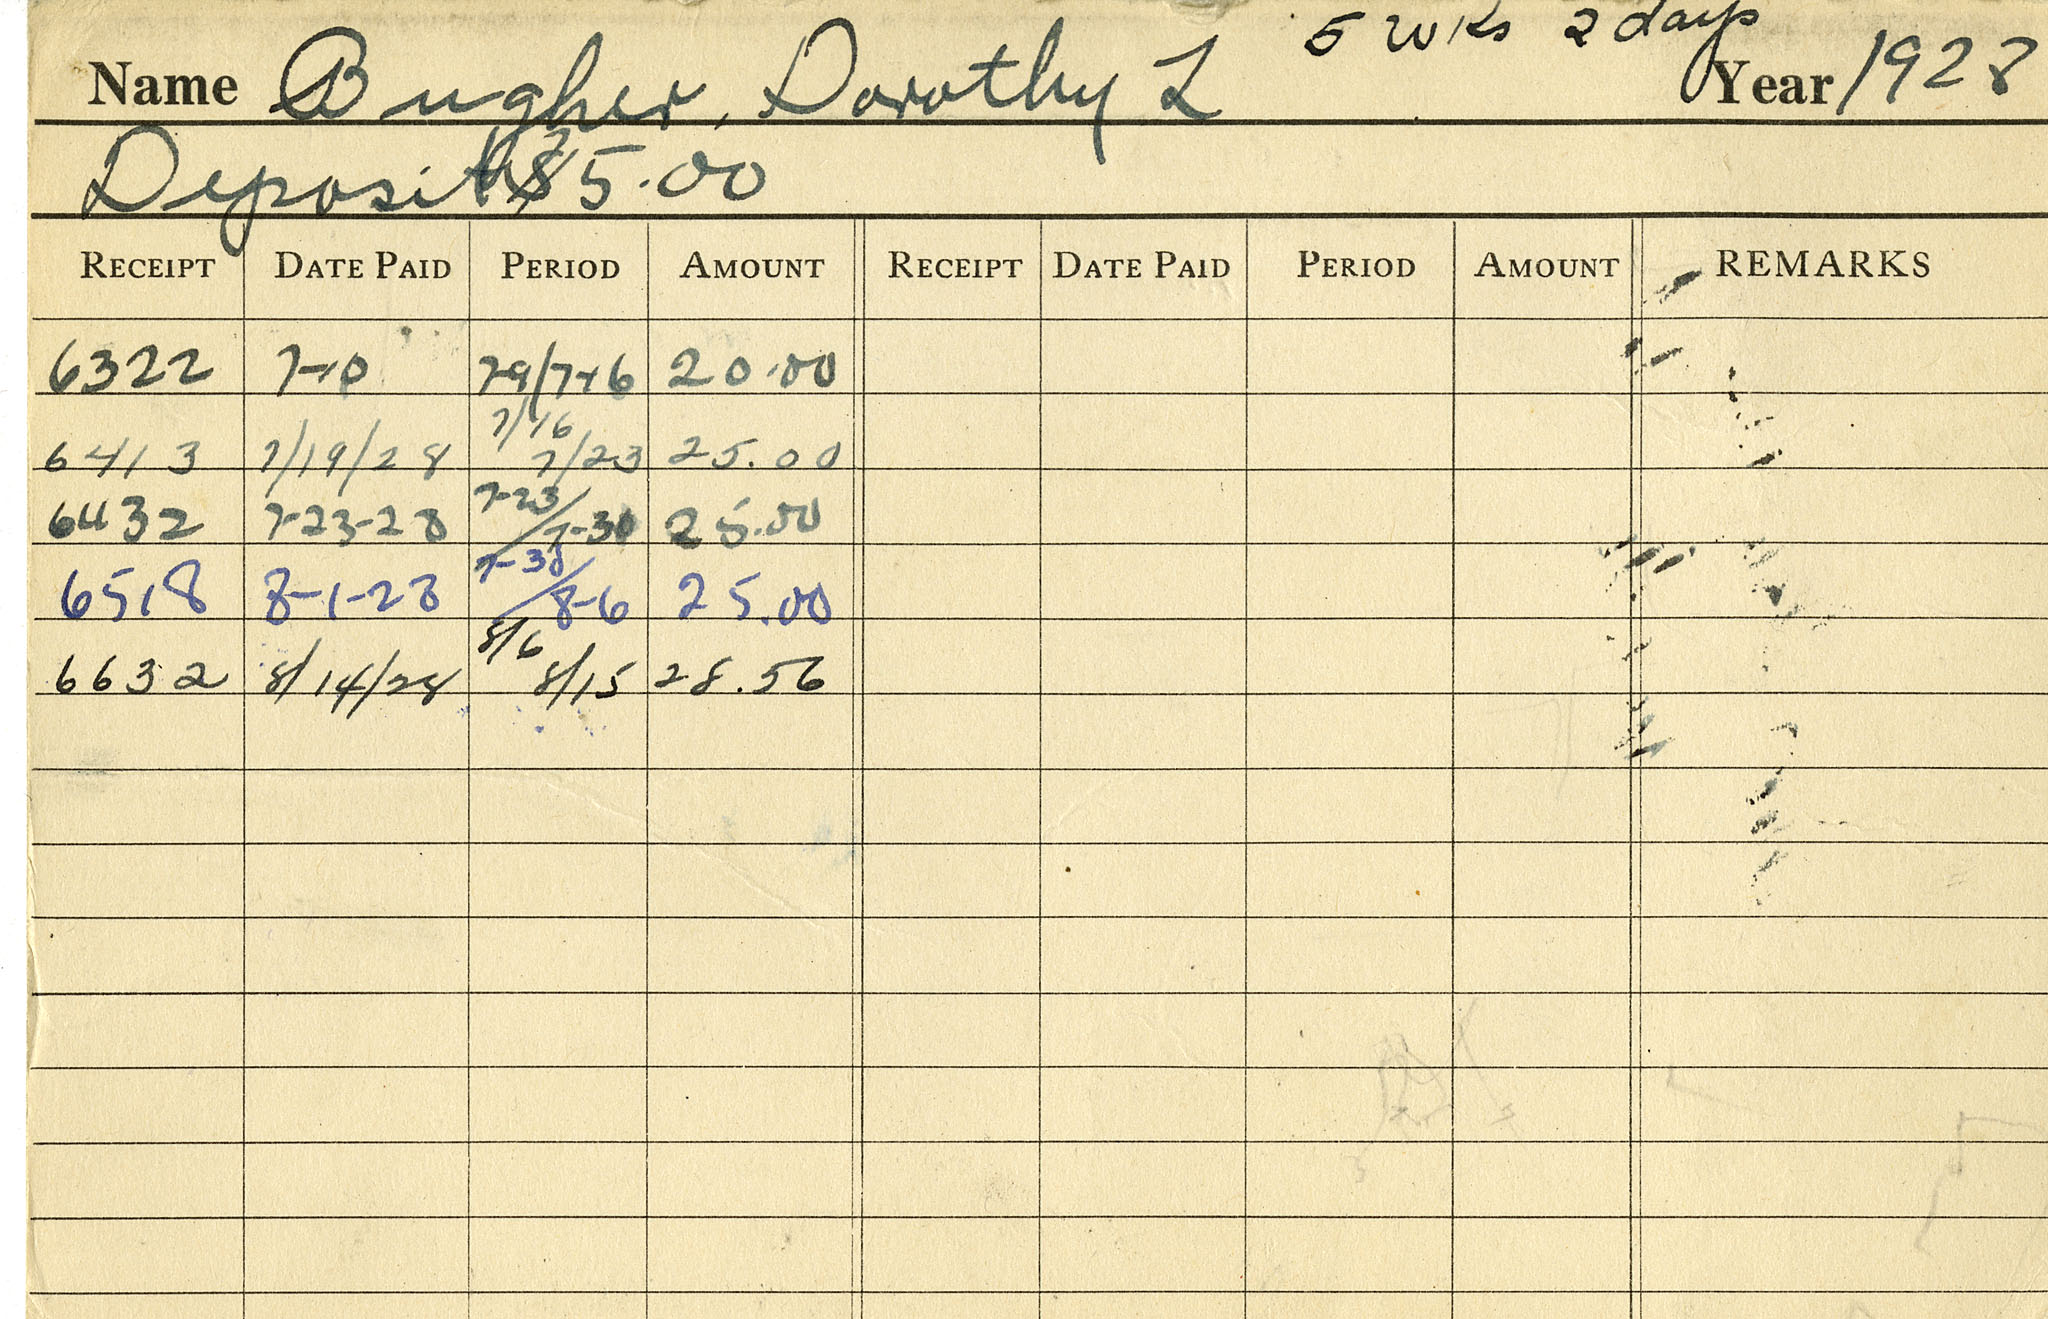 5 wks 2 days
Name Bugher, Dorothy L Year 1928
Deposit $5.00
RECEIPT DATE PAID PERIOD AMOUNT RECEIPT DATE PAID PERIOD AMOUNT REMARKS
6322 7-10 7-9/7-16 20.00
6413 7/19/28 7/16 7/23 25.00
6432 7-23-28 7-23/7-30 25.00
6518 8-1-28 7-30/8-6 25.00
6632 8/14/28 8/6 8/15 28.56